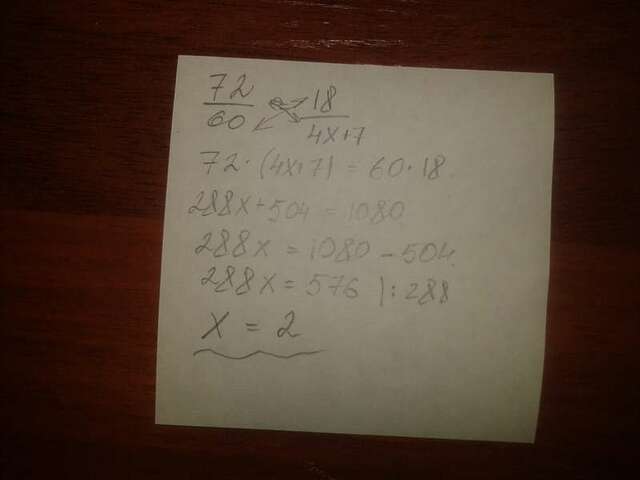 72/60 = 18/4x+7
72·(4x+7) = 60·18
288x+504 = 1080
288x = 1080 - 504
288x = 576 |: 288
x = 2